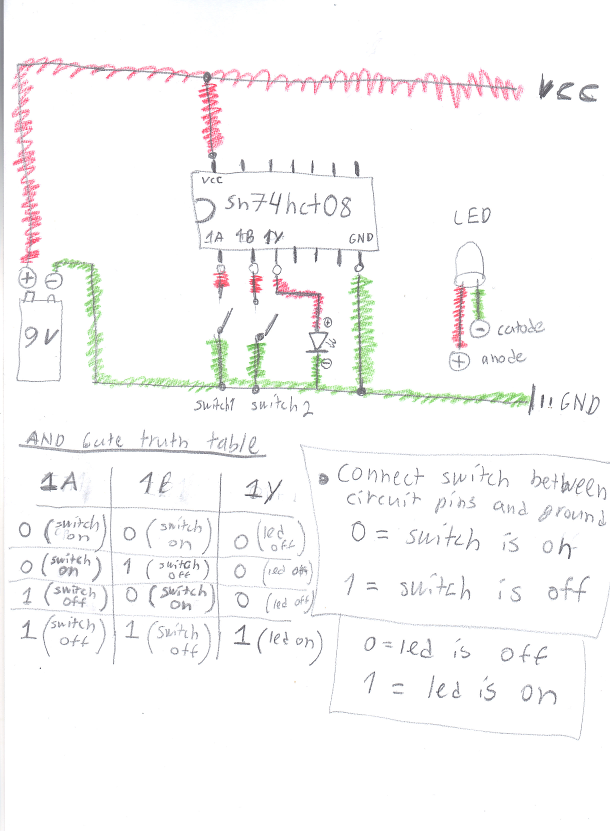 VCC
VCC
sn74hct08
1A 1B 1Y GND
LED
+ -
9V
+
-
- catode
+ anode
switch1 switch2
GND
AND Gate truth table
1A 1B 1Y
0 (switch on) 0 (switch on) 0 (led off)
0 (switch on) 1 (switch off) 0 (led off)
1 (switch off) 0 (switch on) 0 (led off)
1 (switch off) 1 (switch off) 1 (led on)
• Connect switch between
circuit pins and ground
0 = switch is on
1 = switch is off
0 = led is off
1 = led is on